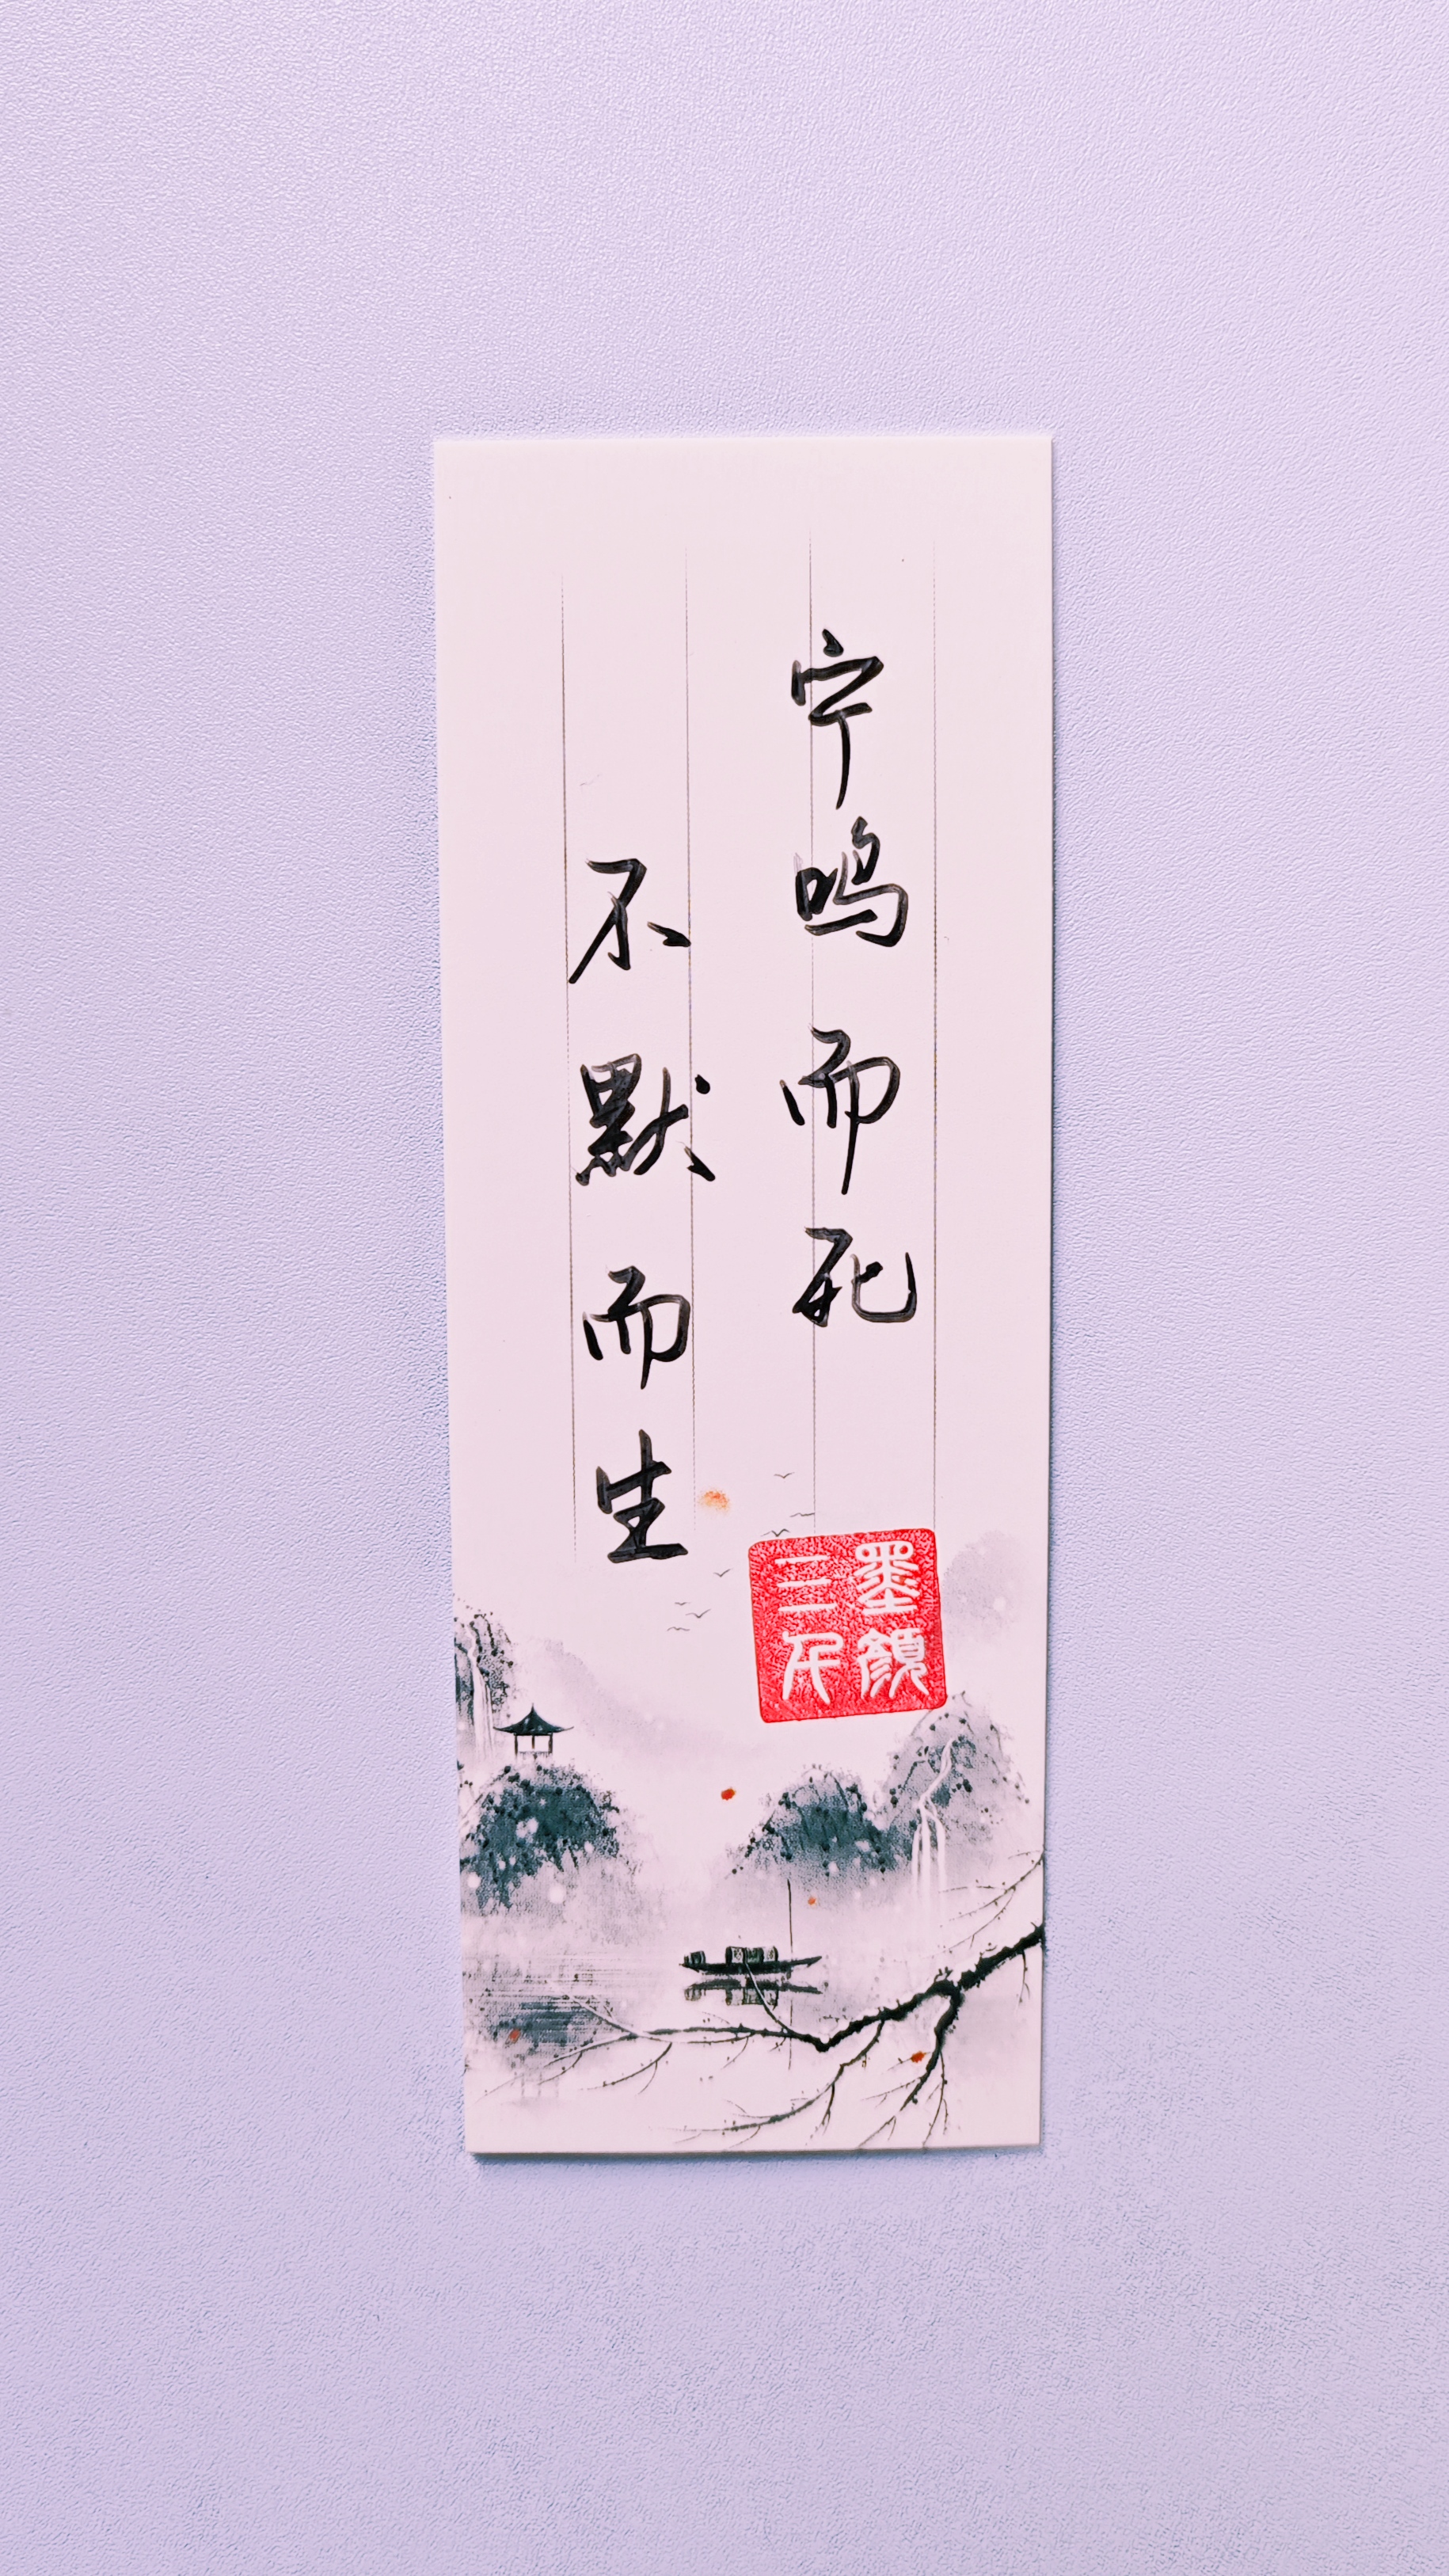 宁鸣而死
不默而生
墨颜
三斤